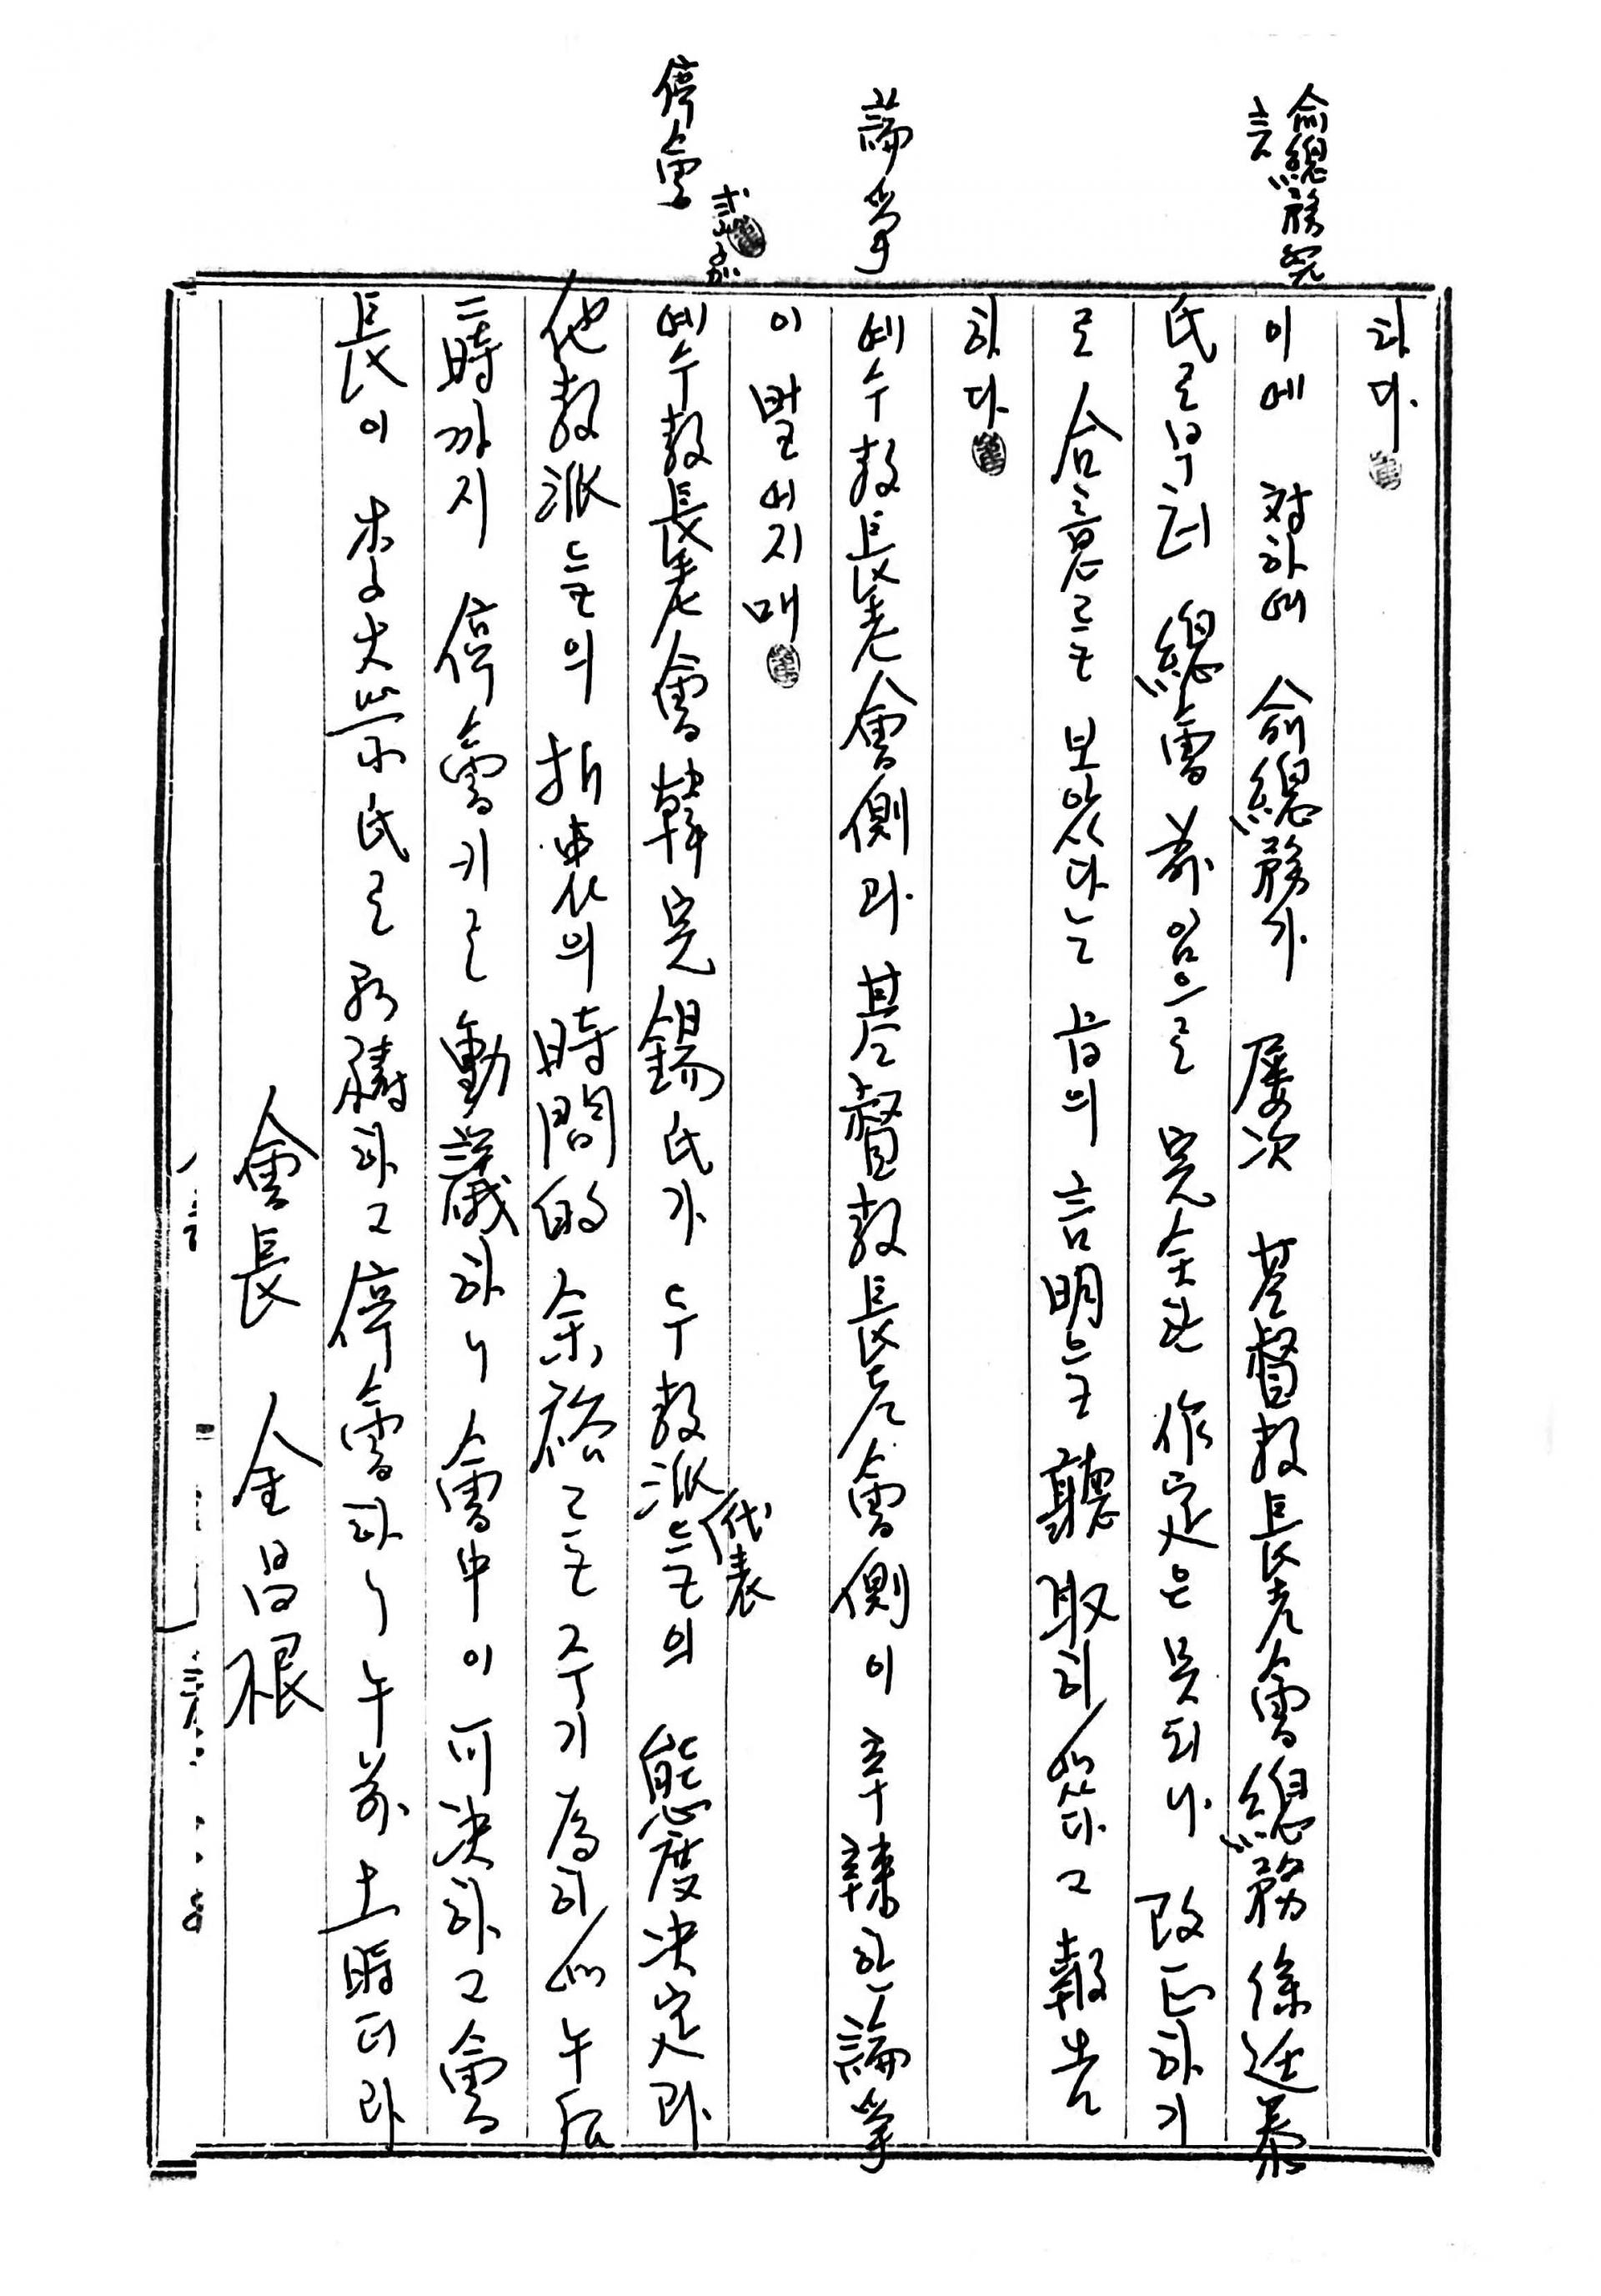 兪總務 発
言
하다.
이에 対하여 兪總務가 屡次 基督敎長老會總務 徐廷泰
氏로부터 總會前임으로 完全한 作定은 못되나 改正하기
로 合意를 보았다는 旨의 言明을 聽取하였다고 報告
하다.
論爭
예수敎長老會側과 基督敎長老會側이 辛辣한 論爭
이 벌어지매
停會
예수敎長老會 韓完錫氏가 두 敎派들의 態度決定과
代表
他敎派들의 折衷의 時間的 余裕를 주기 爲하여 午后
二時까지 停會키로 動議하니 會中이 可決하고 會
長이 李大榮氏로 祈禱하고 停會하니 午前 十一時더라
會長 金昌根